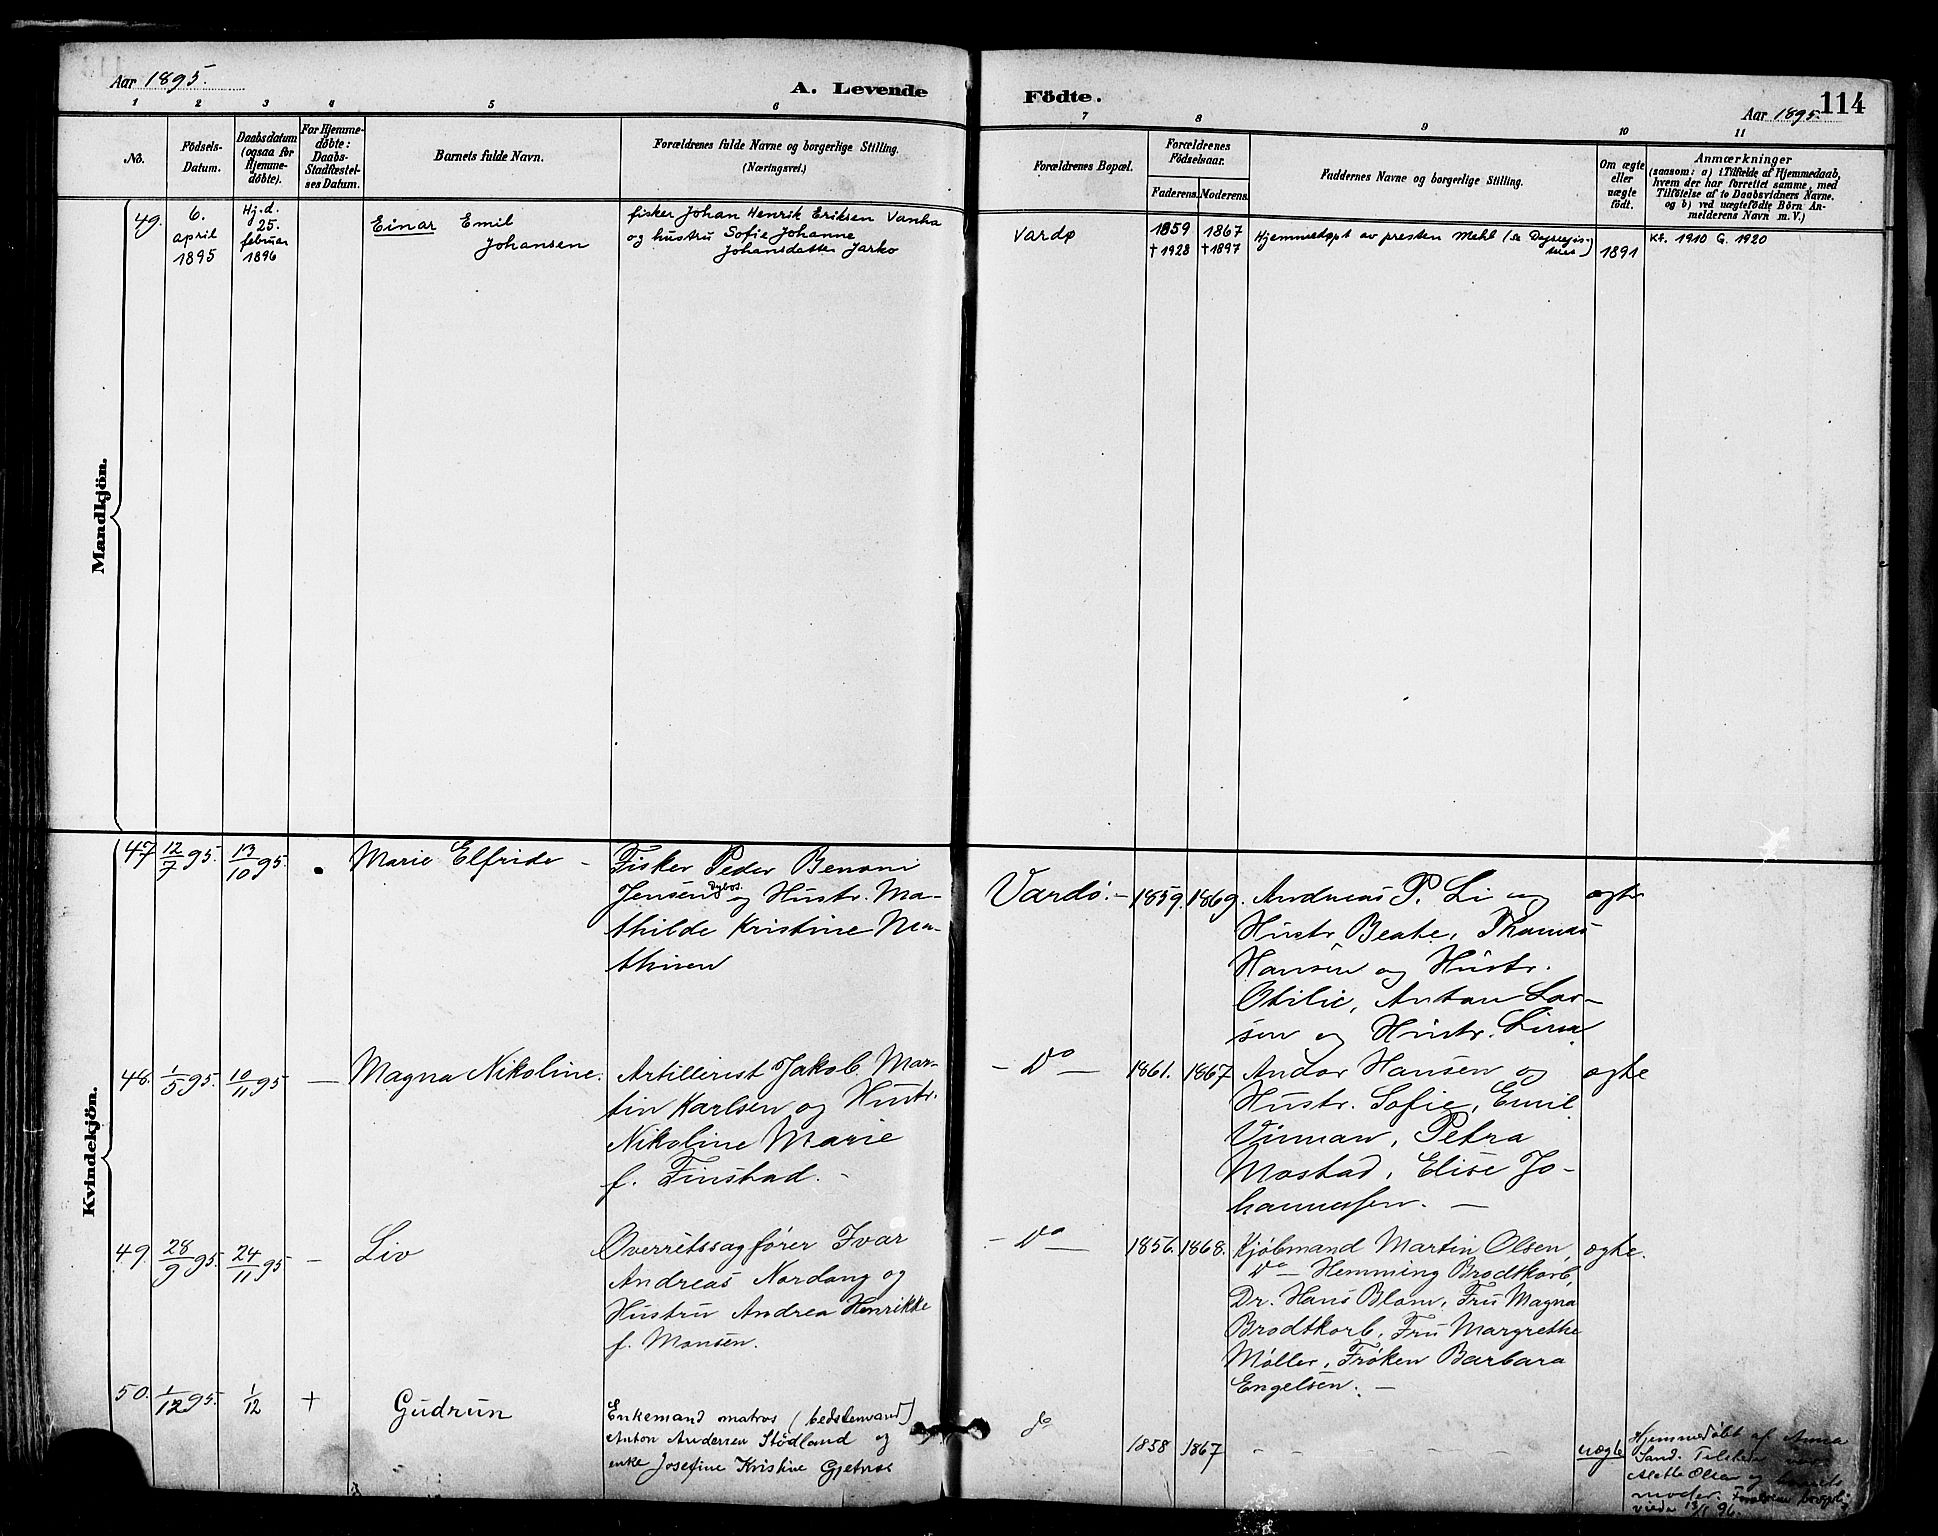 Aar 1895.
A. Levende
Födte.
114
Aar 1895.
1 2 3 4 5 6 7 8 9 10 11
No.
Födsels-
Datum.
Daabsdatum
(ogsaa for
Hjemme-
döbte).
For Hjemme-
döbte:
Daabs-
Stadfæstel-
ses Datum.
Barnets fulde Navn.
Forældrenes fulde Navne og borgerlige Stilling.
(Næringsvei.)
Forældrenes Bopæl.
Forældrenes
Födselsaar.
Faderens. Moderens.
Faddernes Navne og borgerlige Stilling.
Om ægte
eller
uægte
födt.
Anmærkninger
(saasom: a) i Tilfælde af Hjemmedaab,
hvem der har forrettet samme, med
Tilföielse af to Daabsvidners Navne.
og b) ved uægtefödte Börn An-
melderens Navn m. V.)
Mandkjön.
49.
6.
april
1895
Hj.d.
25.
februar
1896
Einar Emil
Johansen
fisker Johan Henrik Eriksen Vanha
og hustru Sofie Johanne
Johansdatter Jarko
Vardø
1859
†1928
1867
†1897
Hjemmedøpt av presten Mehl (se Dagregis-
teret)
1891
Kf. 1910 G. 1920
Kvindekjön.
47
12/7 95.
13/10 95.
Marie Elfride –
Fisker Peder Benoni
Jensen og Hustr. Ma-
thilde Kristine Ma-
thisen
Vardø. –
1859.
1869.
Andreas P. Li og
Hustr. Beate, Thomas
Hansen og Hustr.
Otilie, Anton Lar-
sen og Hustr. Lina
ægte
48.
1/5 95.
10/11 95
—
Magna Nikoline.
Artillerist Jakob Mar-
tin Karlsen og Hustr.
Nikoline Marie
f. Finstad. –
– Do –
1861.
1867
Andor Hansen og
Hustr. Sofie, Emil
Vinman, Petra
Mostad, Elise Jo-
hannesen. —
ægte
49.
28/9 95.
24/11 95
–
Liv
Overretssagfører Ivar
Andreas Nordang og
Hustru Andrea Henrikke
f. Monsen.
– Do –
1856.
1868.
Kjøbmand Martin Olsen,
Do – Hemming Brodtkorb,
Dr. Hans Blom, Fru Magna
Brodtkorb, Fru Margrethe
Møller, Frøken Barbara
Engelsen. –
ægte.
50.
1/12 95.
1/12
+
Gudrun
Enkemand matros (bedstemand)
Anton Andersen Stødland og
enke Josefine Kristine Gjetnæs
do
1858
1867
– – – – –
uægte
Hjemmedøbt af Anna
Sand. Tilstede var
Alette Olsen og barnets
moder. Forældrene
viede 13/1 96.